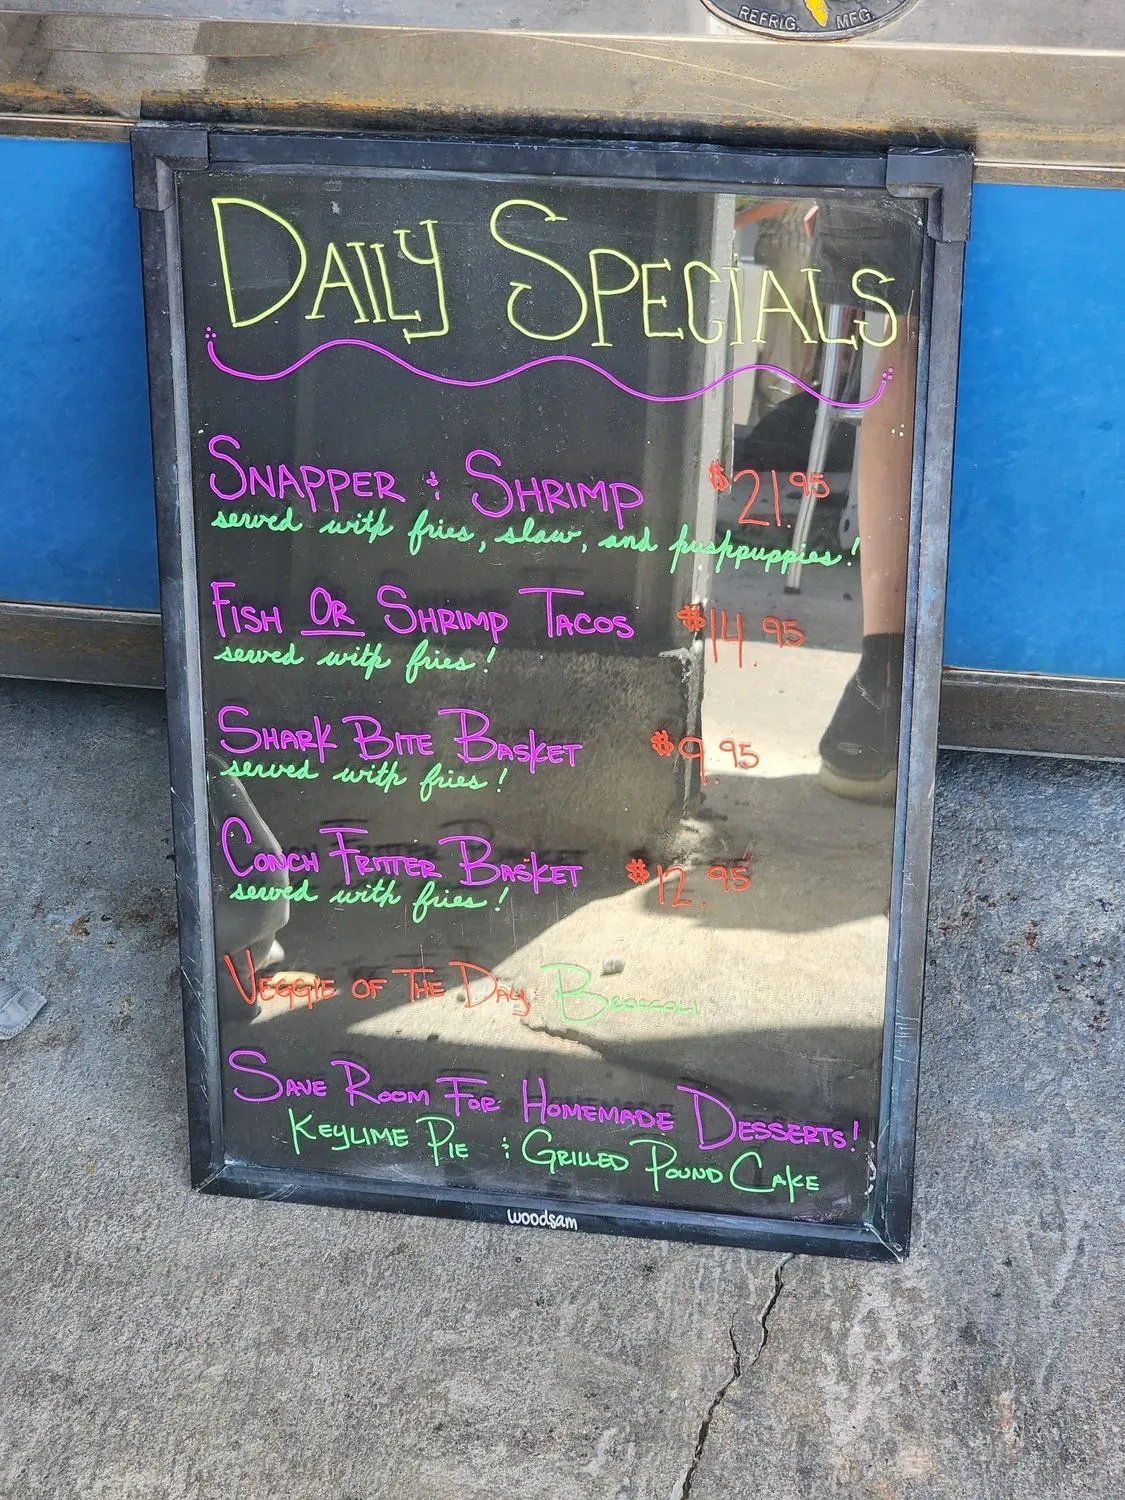 REFRIG. MFG
DAILY SPECIALS
SNAPPER & SHRIMP $21.95
served with fries, slaw, and hushpuppies!
FISH OR SHRIMP TACOS $14.95
served with fries!
SHARK BITE BASKET $9.95
served with fries!
CONCH FRITTER BASKET $12.95
served with fries!
VEGGIE OF THE DAY BROCCOLI
SAVE ROOM FOR HOMEMADE DESSERTS!
KEYLIME PIE & GRILLED POUND CAKE
woodsam